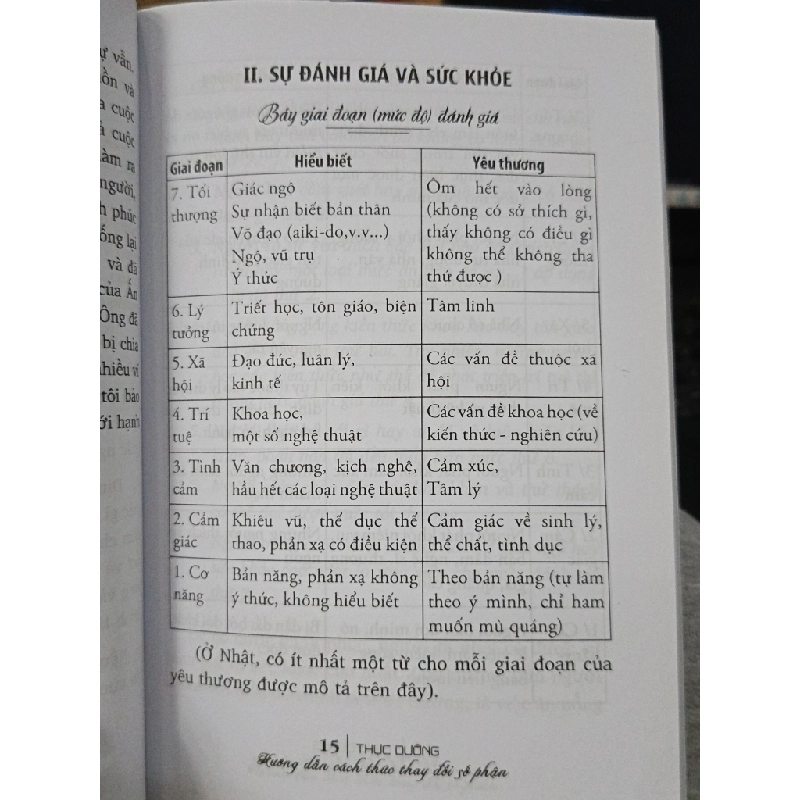 ự vẫn,
ồn và
a cuộc
à cuộc
àm ra
người,
h phúc
ống lại
và đã
của Ấn
Ông đã
bị chia
hiều vi
tôi bảo
ới hạnh
II. SỰ ĐÁNH GIÁ VÀ SỨC KHỎE
Bảy giai đoạn (mức độ) đánh giá
Giai đoạn Hiểu biết Yêu thương
7. Tối thượng
Giác ngộ
Sự nhận biết bản thân
Võ đạo (aiki-do,v.v...)
Ngộ, vũ trụ
Ý thức
Ôm hết vào lòng
(không có sở thích gì,
thấy không có điều gì
không thể không tha
thứ được )
6. Lý tưởng
Triết học, tôn giáo, biện
chứng
Tâm linh
5. Xã hội
Đạo đức, luân lý,
kinh tế
Các vấn đề thuộc xã
hội
4. Trí tuệ
Khoa học,
một số nghệ thuật
Các vấn đề khoa học (về
kiến thức - nghiên cứu)
3. Tình cảm
Văn chương, kịch nghệ,
hầu hết các loại nghệ thuật
Cảm xúc,
Tâm lý
2. Cảm giác
Khiêu vũ, thể dục thể
thao, phản xạ có điều kiện
Cảm giác về sinh lý,
thể chất, tình dục
1. Cơ năng
Bản năng, phản xạ không
ý thức, không hiểu biết
Theo bản năng (tự làm
theo ý mình, chỉ ham
muốn mù quáng)
(Ở Nhật, có ít nhất một từ cho mỗi giai đoạn của
yêu thương được mô tả trên đây).
15 | THỰC DƯỠNG
Hướng dẫn cách thức thay đổi số phận